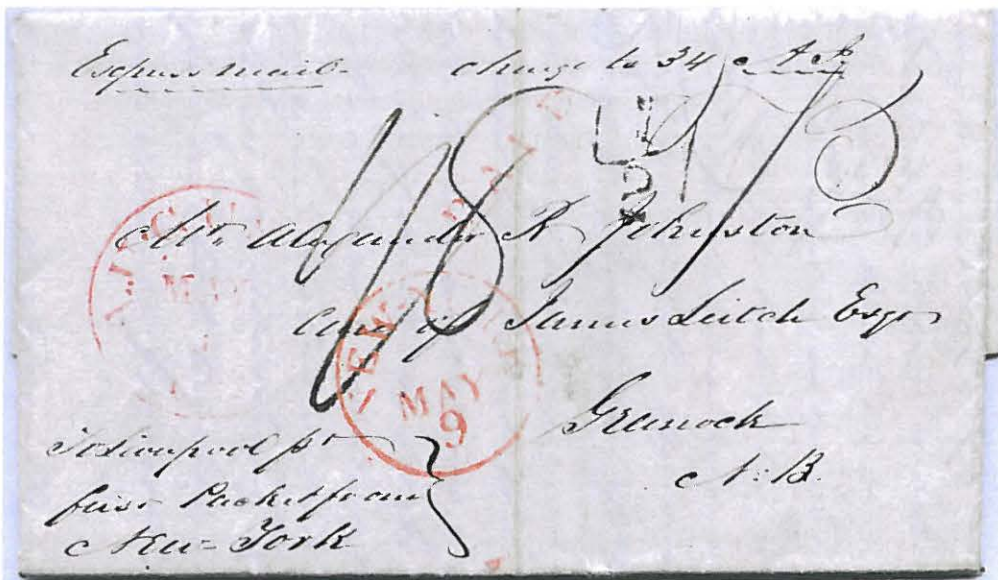 Express mail charge to 34
1/8
1/3
U
2
PAID
MAY
Mr. Alexander R Johnston
Care of James Leitch Esqr
NEW
MAY
9
Greenock
N.B.
To Liverpool pr
first Packet from
New-York